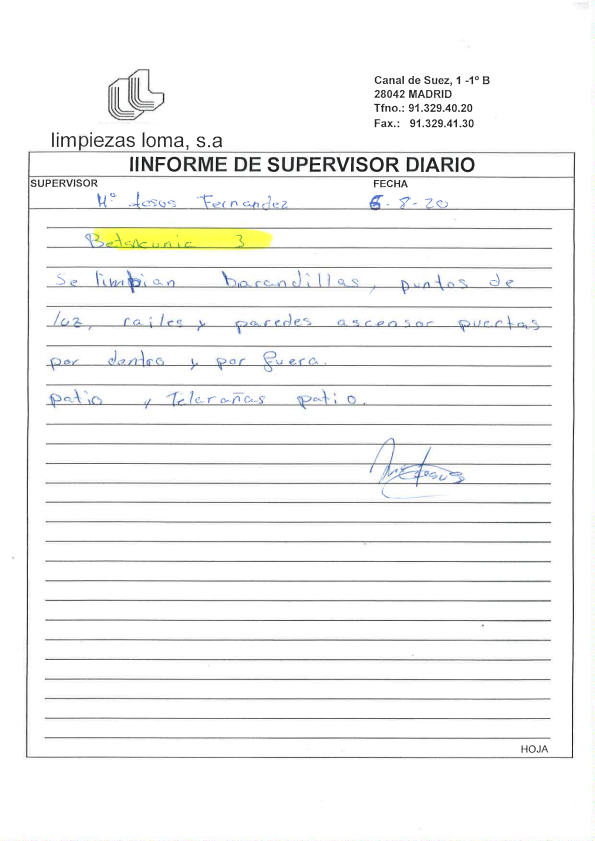 Canal de Suez, 1 -1º B
28042 MADRID
Tfno.: 91.329.40.20
Fax.: 91.329.41.30
limpiezas loma, s.a
IINFORME DE SUPERVISOR DIARIO
SUPERVISOR
FECHA
Mª Jesus Fernandez
6-8-20
3
Se limpian barandillas, puntos de
luz, railes y paredes ascensor puertas
por dentro y por fuera.
patio y Telarañas patio.
HOJA